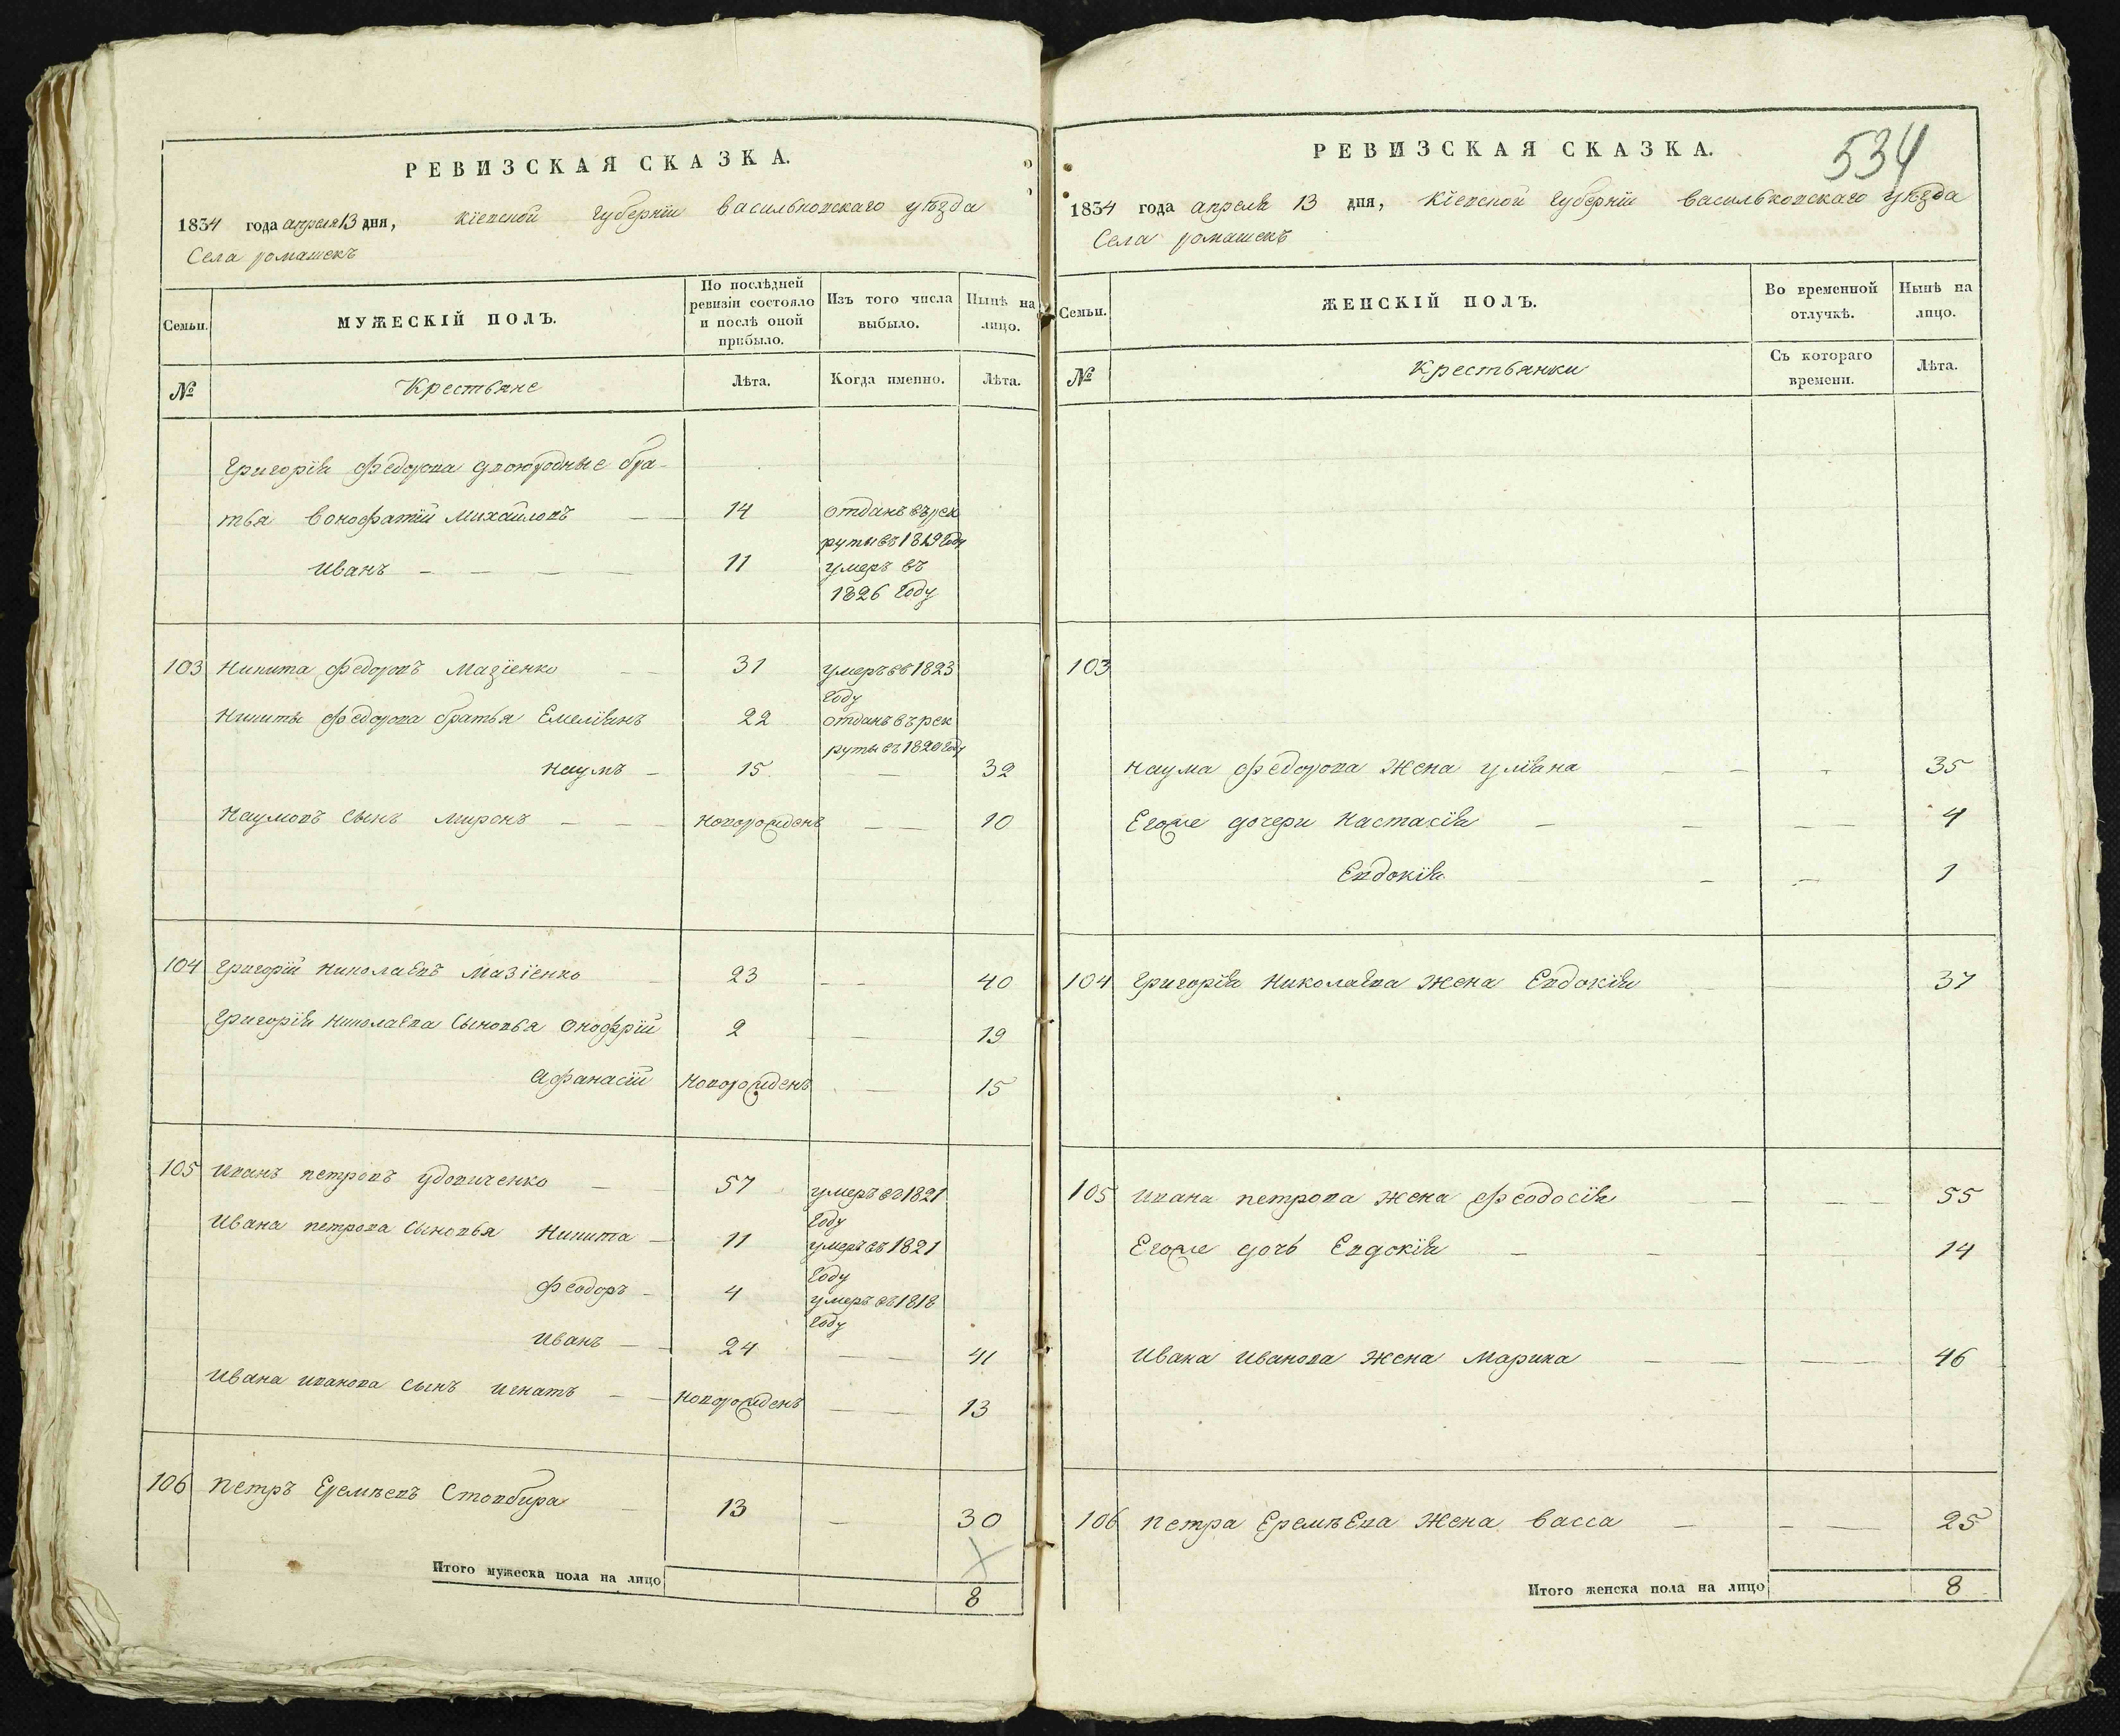 РЕВИЗСКАЯ СКАЗКА.
1834 года апреля 13 дня, Кіевской Губерніи Васильковскаго уѣзда
Села ромашекъ
Семьи.
МУЖЕСКІЙ ПОЛЪ.
По послѣдней ревизіи состояло и послѣ оной прибыло.
Изъ того числа выбыло.
Нынѣ на лицо.
№
Крестьяне
Лѣта.
Когда именно.
Лѣта.
Григорія Федорова двоюродные бра-
тья Вонофатій Михайловъ — 14 отданъ въ рек
руты въ 1819 году
Иванъ — — — — 11 умеръ въ
1826 году
103 Никита Федоровъ Мазіенко — — 31 умеръ въ 1823
году
Никиты Федорова братья Емеліянъ 22 отданъ въ рек
руты въ 1820 году
Наумъ — 15 — 32
Наумовъ сынъ Миронъ — — — новорожденъ — — 10
104 Григорій Николаевъ Мазіенко — 23 — — 40
Григорія Николаева сыновья Онофрій 2 — — 19
Афанасій новорожденъ — 15
105 Иванъ петровъ удовиченко — — 57 умеръ въ 1821
году
Ивана петрова сыновья Никита — 11 умеръ въ 1821
году
Феодоръ — 4 умеръ въ 1818
году
Иванъ — — 24 — — 41
Ивана иванова сынъ игнатъ — — новорожденъ — — 13
106 Петръ Еремѣевъ Стовбира — 13 — 30
Итого мужеска пола на лицо 8
534
РЕВИЗСКАЯ СКАЗКА.
1834 года апреля 13 дня, Кіевской Губерніи Васильковскаго уѣзда
Села ромашекъ
Семьи.
ЖЕНСКІЙ ПОЛЪ.
Во временной отлучкѣ.
Нынѣ на лицо.
№
Крестьянки
Съ котораго времени.
Лѣта.
103
Наума Федорова жена уліяна — — — 35
Егоже дочери Настасія — — — — 4
Евдокія — — 1
104 Григорія Николаева жена Евдокія — 37
105 Ивана петрова жена Феодосія — — — 55
Егоже дочь Евдокія — — — 14
Ивана Иванова жена Марина — — — — — 46
106 Петра Еремѣева жена Васса — — — 25
Итого женска пола на лицо 8